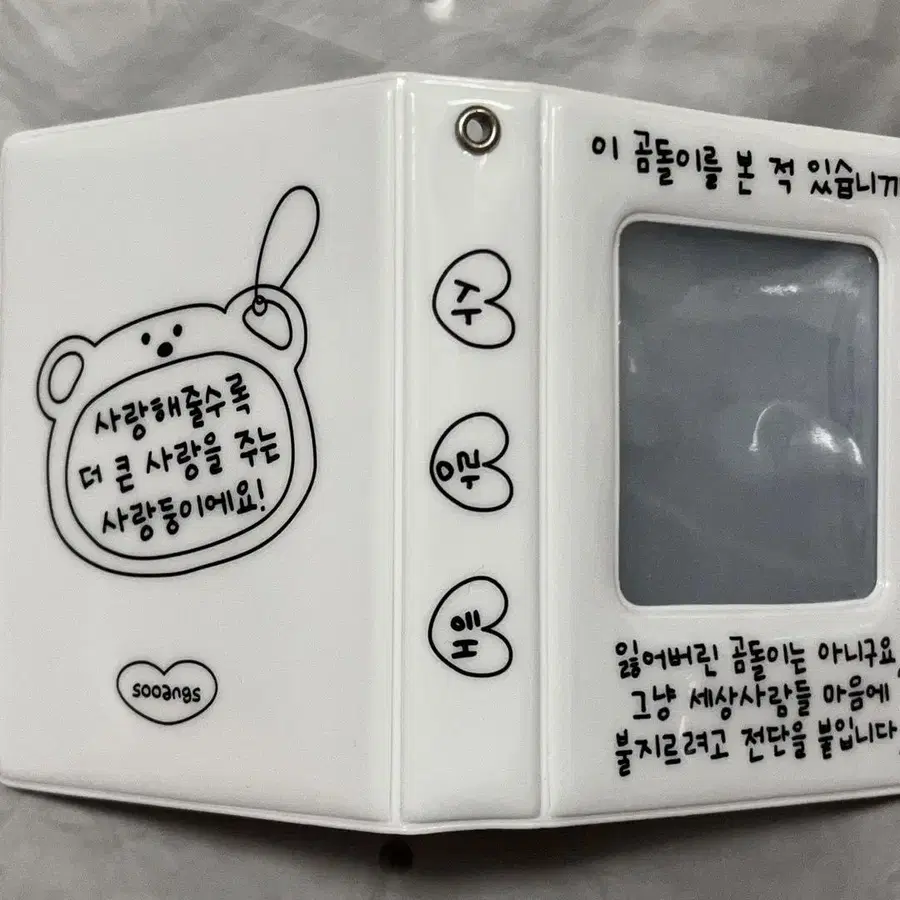 사랑해줄수록
더 큰 사랑을 주는
사랑둥이에요!
sooangs
수
이 곰돌이를 본 적 있습니까
잃어버린 곰돌이는 아니구요,
그냥 세상사람들 마음에
불지르려고 전단을 붙입니다